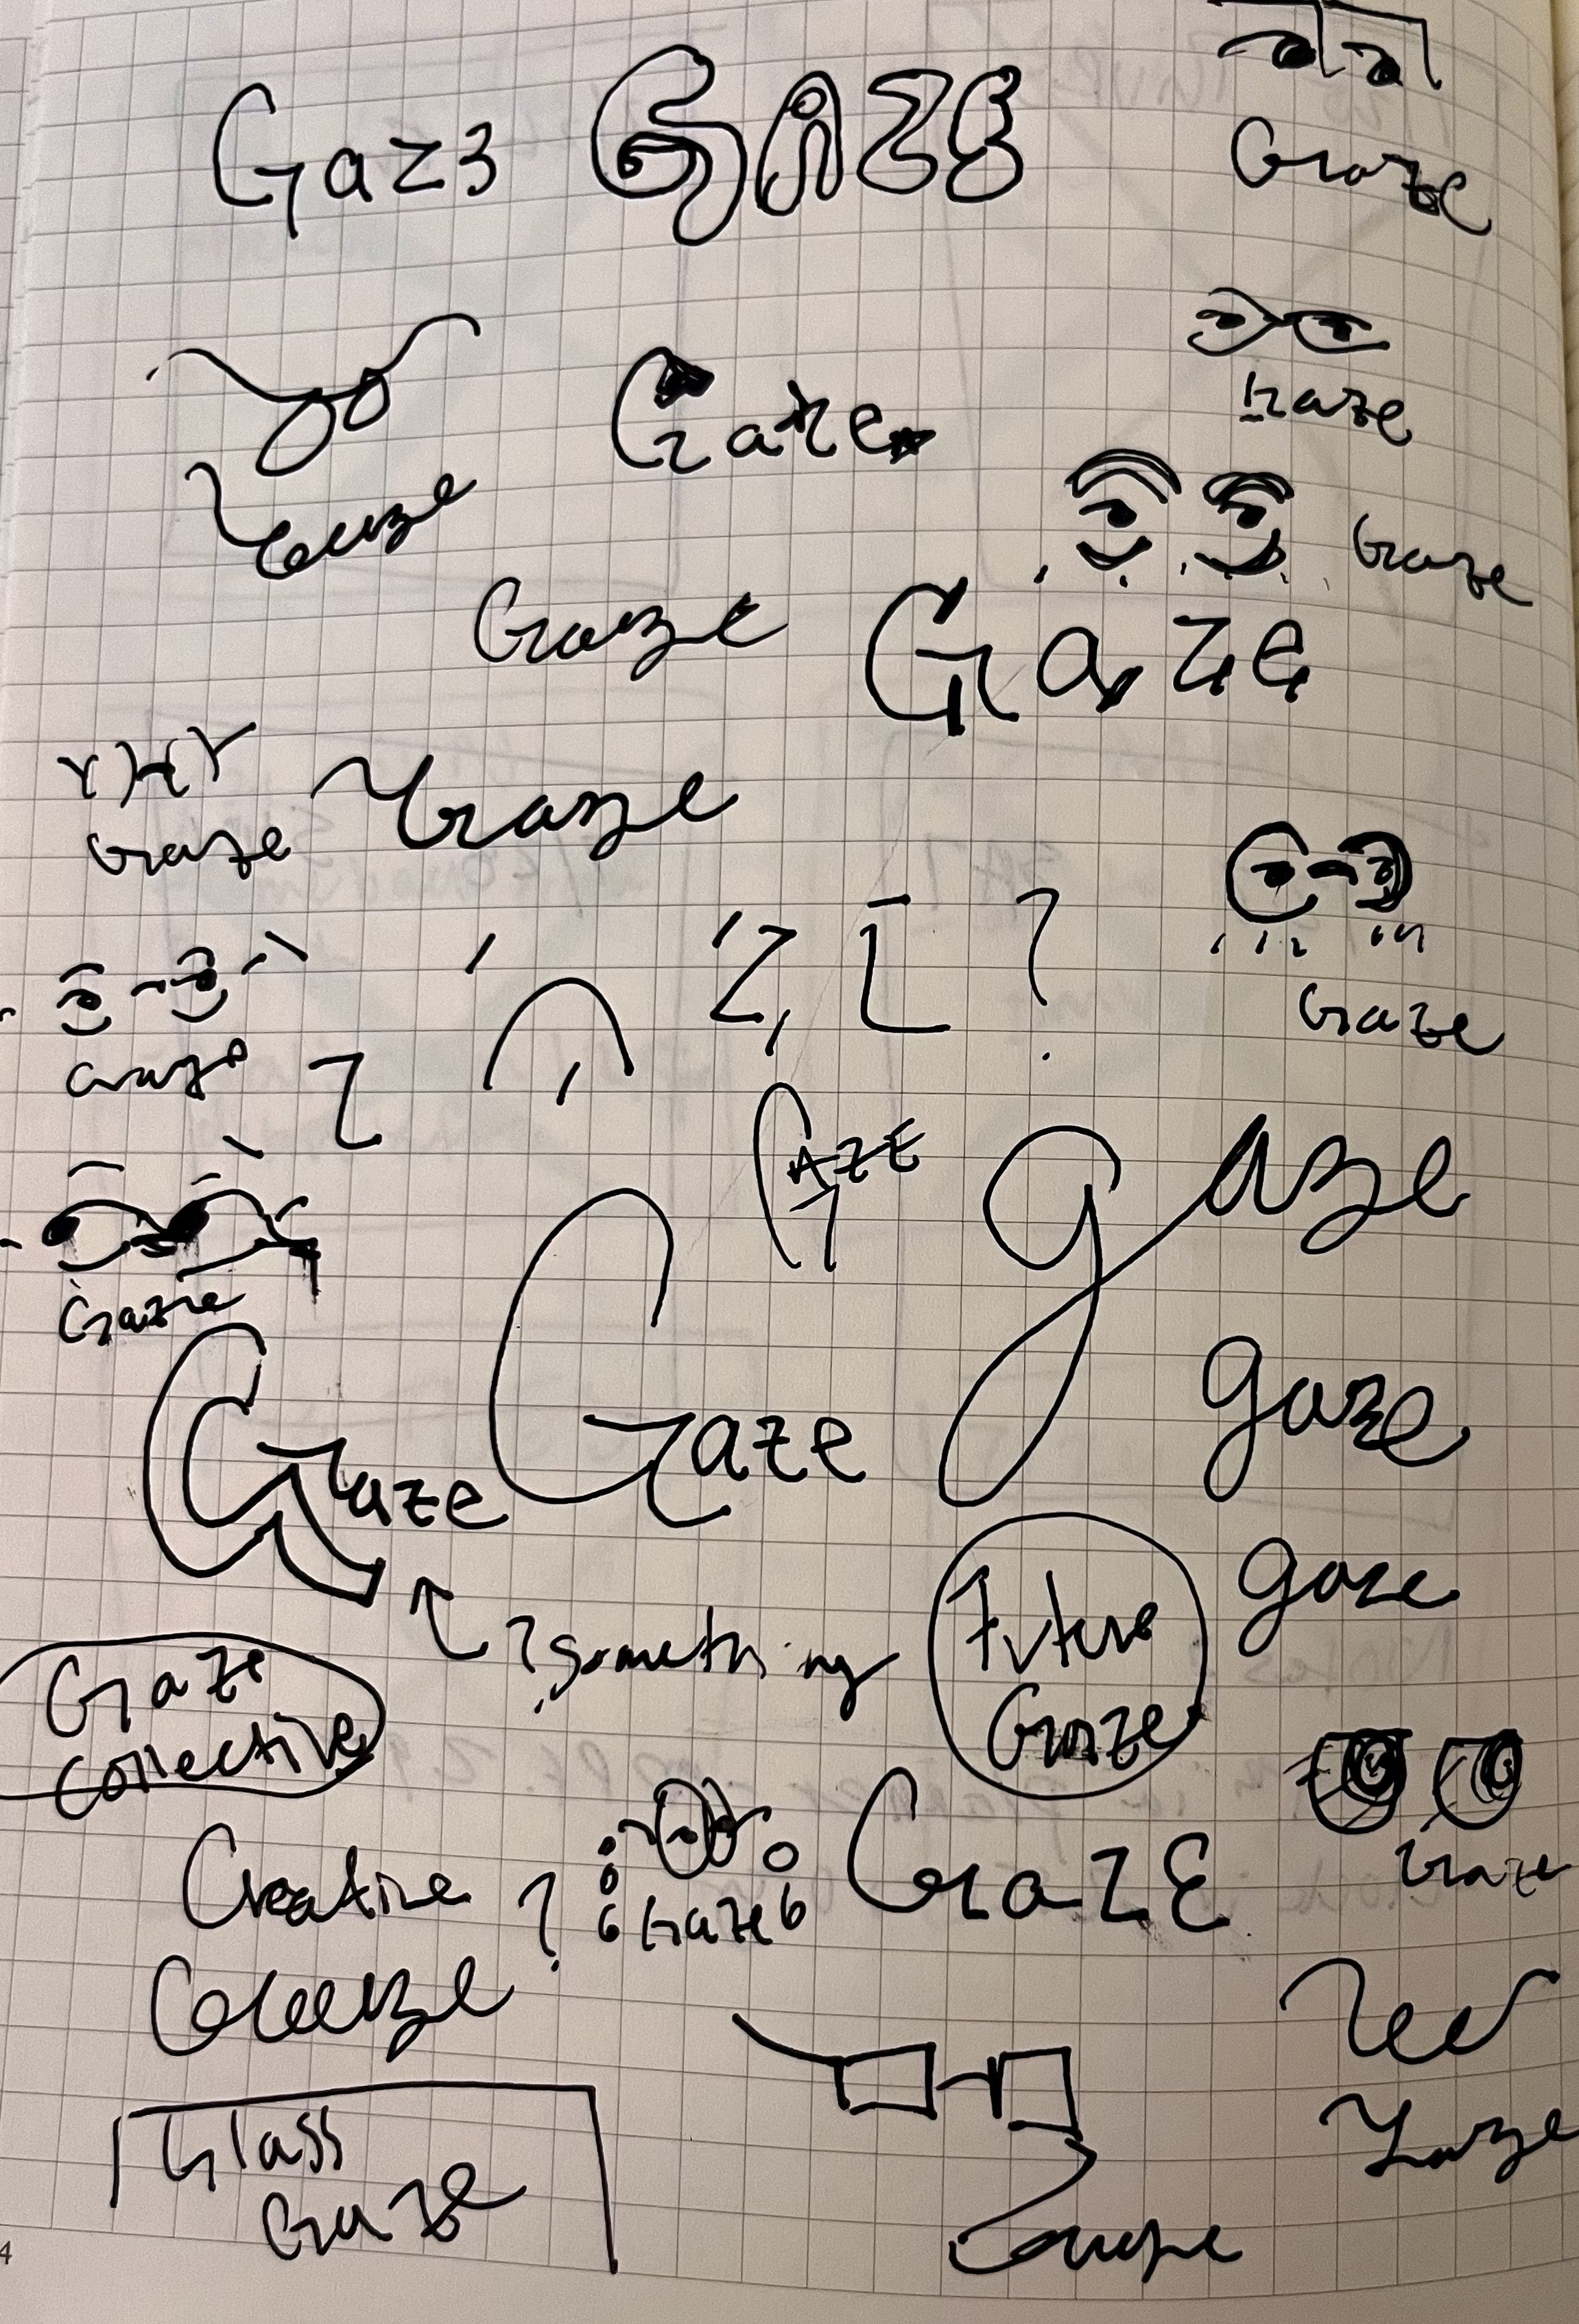 Gaz3 GAZE
Gaze
Gaze
Gaze
Gaze
Gaze
Gaze
Gaze
Gaze
Gaze
Gaze
Gaze
Gaze
GAZE
gaze
Gaze
Gaze
Gaze
gaze
gaze
? Something
Future
Gaze
Gaze
Collective
Creative
Gaze
?
Gaze
GaZE
Gaze
Glass
Gaze
Gaze
Gaze